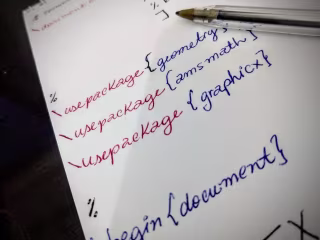 %
\usepackage{geometry}
\usepackage{amsmath}
\usepackage{graphicx}
%
\begin{document}